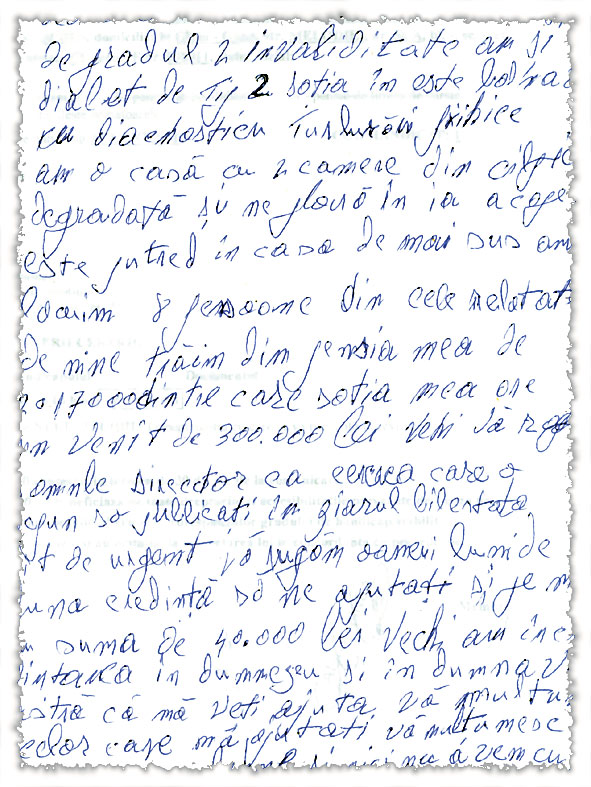 de gradul 2 invaliditate am și
diabet de Tip 2 soția în este bolnavă
cu diacnosticu Tulburări psihice
am o casă cu 2 camere din
degradată și ne plouă în ia acope
este putred în casa de mai sus am
locuim 8 persoane din cele relatat
de mine trăim din pensia mea de
17000 dintre care soția mea are
un venit de 300.000 lei vechi vă rog
omnle Director ca cererea care o
so publicați în ziarul libertata
t de urgent vă rugăm oameni lumi de
una credință să ne ajutați și pe m
suma de 40.000 lei vechi am înc
in dumnezeu și în dumnav
stră că mă veți ajuta vă mulțu
celor care mă ajutați vă mulțumesc
și nici nu avem cu